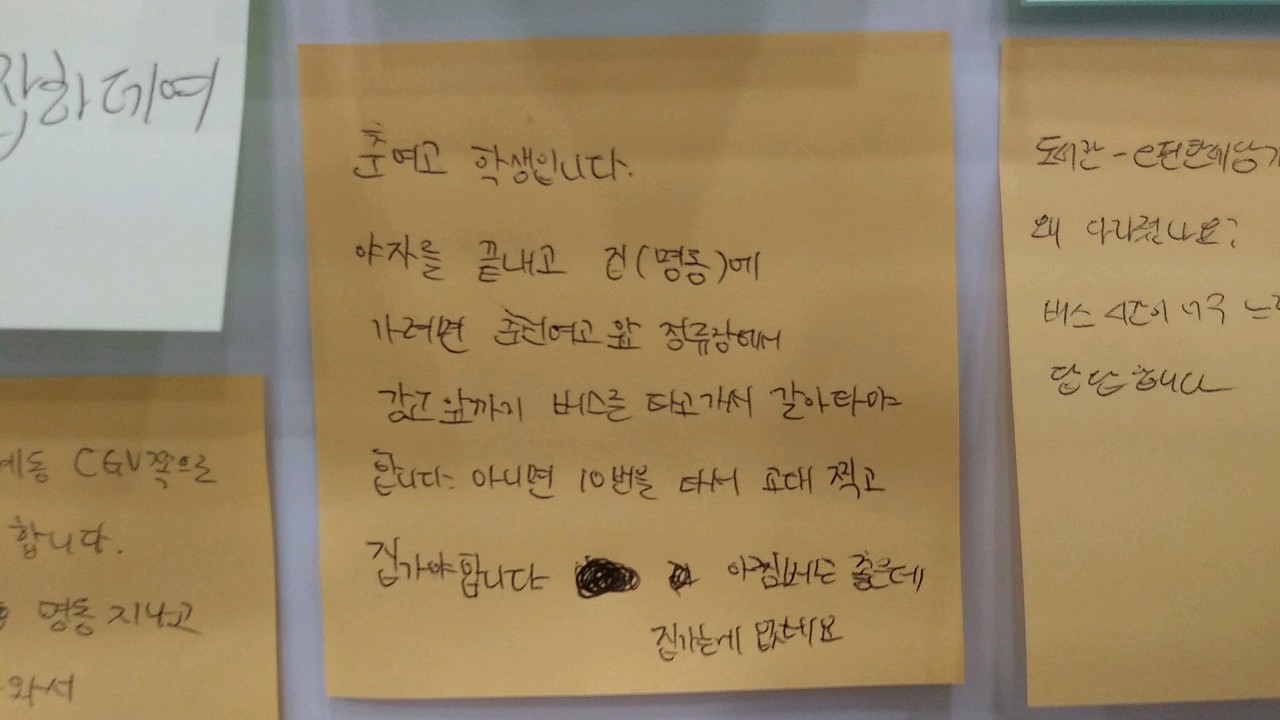 잡하데여
춘여고 학생입니다.
야자를 끝내고 집(명동)에
가려면 춘천여고 앞 정류장에서
강고 앞까지 버스를 타고가서 갈아타야
합니다. 아니면 10번을 타서 교대 찍고
집가야합니다 아침버스는 좋은데
집가는게 없네요
도서관 - e편한세상가
왜 사라졌나요?
버스 시간이 너무 느
답답합니다
CGV쪽으로
합니다.
명동 지나고
와서